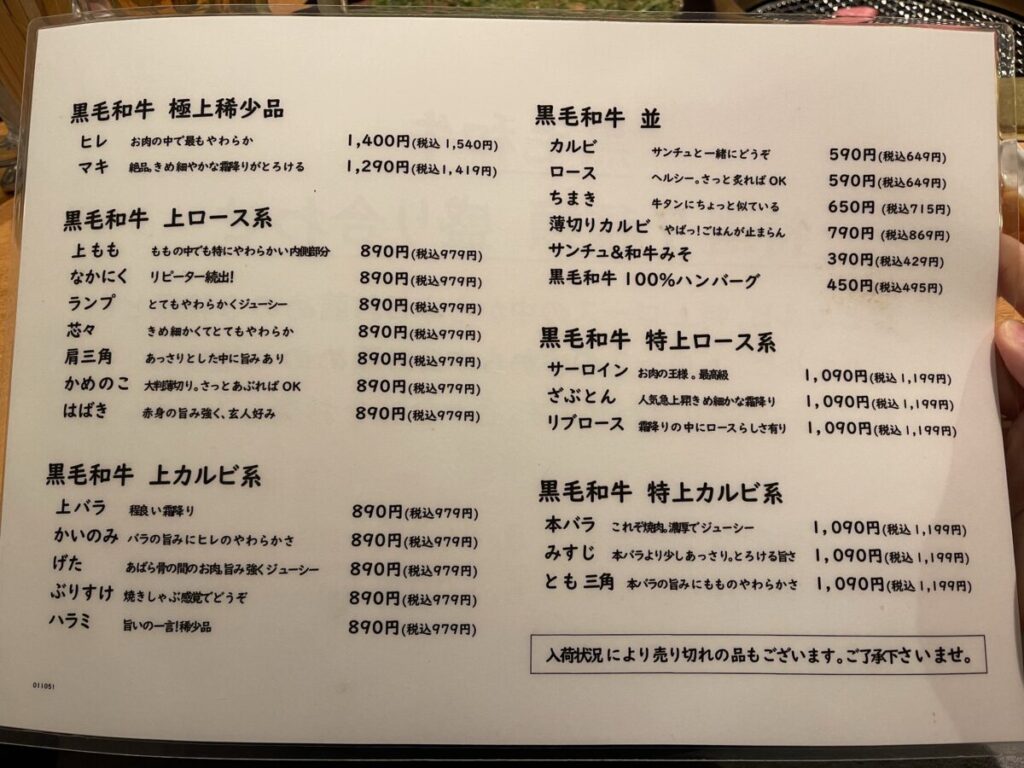 黒毛和牛 極上稀少品
ヒレ お肉の中で最もやわらか 1,400円(税込 1,540円)
マキ 絶品。きめ細やかな霜降りがとろける 1,290円(税込 1,419円)
黒毛和牛 上ロース系
上もも ももの中でも特にやわらかい内側部分 890円(税込979円)
なかにく リピーター続出! 890円(税込979円)
ランプ とてもやわらかくジューシー 890円(税込979円)
芯々 きめ細かくてとてもやわらか 890円(税込979円)
肩三角 あっさりとした中に旨みあり 890円(税込979円)
かめのこ 大判薄切り。さっとあぶればOK 890円(税込979円)
はばき 赤身の旨み強く、玄人好み 890円(税込979円)
黒毛和牛 上カルビ系
上バラ 程良い霜降り 890円(税込979円)
かいのみ バラの旨みにヒレのやわらかさ 890円(税込979円)
げた あばら骨の間のお肉。旨み強くジューシー 890円(税込979円)
ぶりすけ 焼きしゃぶ感覚でどうぞ 890円(税込979円)
ハラミ 旨いの一言!稀少品 890円(税込979円)
011051
黒毛和牛 並
カルビ サンチュと一緒にどうぞ 590円(税込649円)
ロース ヘルシー。さっと炙ればOK 590円(税込649円)
ちまき 牛タンにちょっと似ている 650円(税込715円)
薄切りカルビ やばっ!ごはんが止まらん 790円(税込869円)
サンチュ&和牛みそ 390円(税込429円)
黒毛和牛 100%ハンバーグ 450円(税込495円)
黒毛和牛 特上ロース系
サーロイン お肉の王様。最高級 1,090円(税込 1,199円)
ざぶとん 人気急上昇!きめ細かな霜降り 1,090円(税込 1,199円)
リブロース 霜降りの中にロースらしさ有り 1,090円(税込 1,199円)
黒毛和牛 特上カルビ系
本バラ これぞ焼肉。濃厚でジューシー 1,090円(税込 1,199円)
みすじ 本バラより少しあっさり。とろける旨さ 1,090円(税込 1,199円)
とも三角 本バラの旨みにもものやわらかさ 1,090円(税込 1,199円)
入荷状況により売り切れの品もございます。ご了承下さいませ。